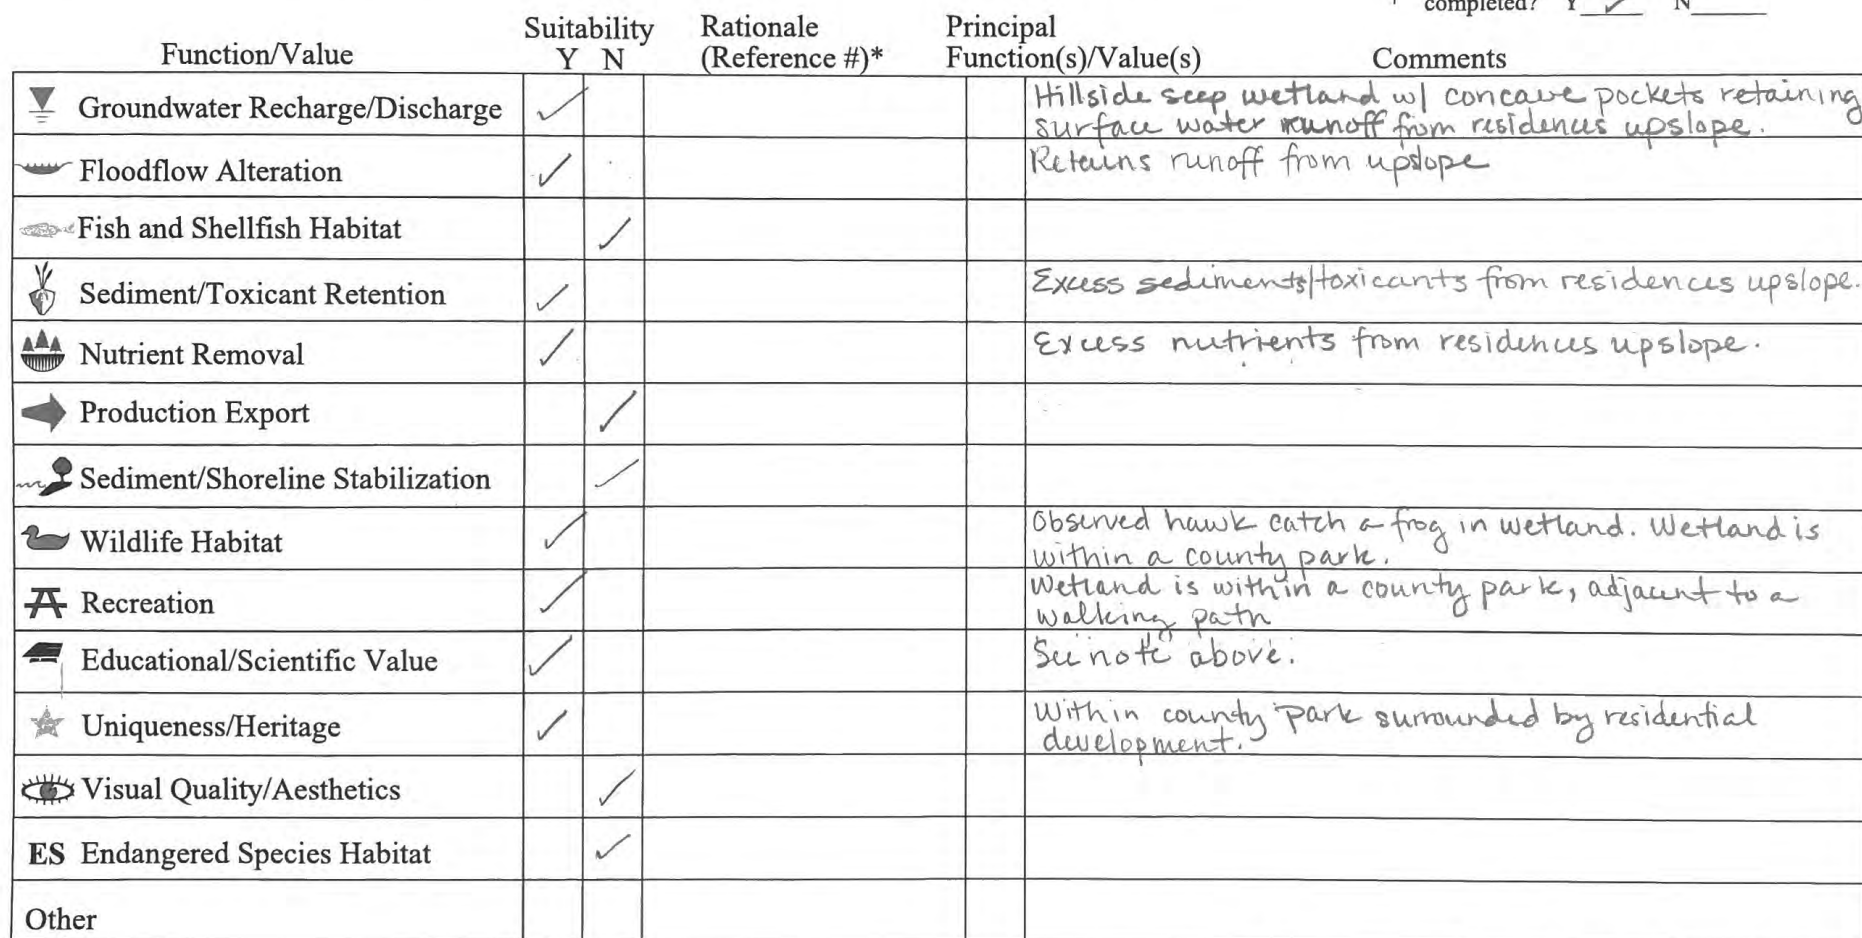 completed? Y ✓ N
Suitability Rationale Principal
Function/Value Y N (Reference #)* Function(s)/Value(s) Comments
Groundwater Recharge/Discharge ✓ Hillside seep wetland w/ concave pockets retaining
surface water runoff from residences upslope.
Floodflow Alteration ✓ Retains runoff from upslope
Fish and Shellfish Habitat ✓
Sediment/Toxicant Retention ✓ Excess sediments/toxicants from residences upslope.
Nutrient Removal ✓ Excess nutrients from residences upslope.
Production Export ✓
Sediment/Shoreline Stabilization ✓
Wildlife Habitat ✓ Observed hawk catch a frog in wetland. Wetland is
within a county park.
Recreation ✓ Wetland is within a county park, adjacent to a
walking path
Educational/Scientific Value ✓ See note above.
Uniqueness/Heritage ✓ Within county park surrounded by residential
development.
Visual Quality/Aesthetics ✓
ES Endangered Species Habitat ✓
Other